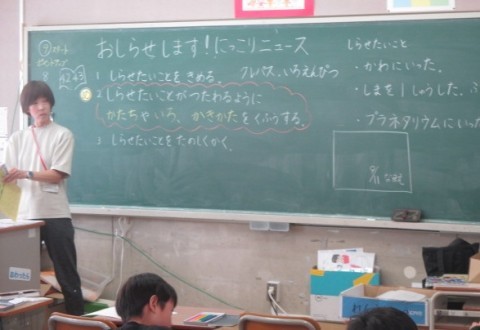 おしらせします!にっこりニュース
1 しらせたいことをきめる。 クレパス、いろえんぴつ
2 しらせたいことがつたわるように
かたちやいろ、かきかたをくふうする。
3 しらせたいことをたのしくかく。
しらせたいこと
・かわにいった。
・しまを1しゅうした。
・プラネタリウムにいっ